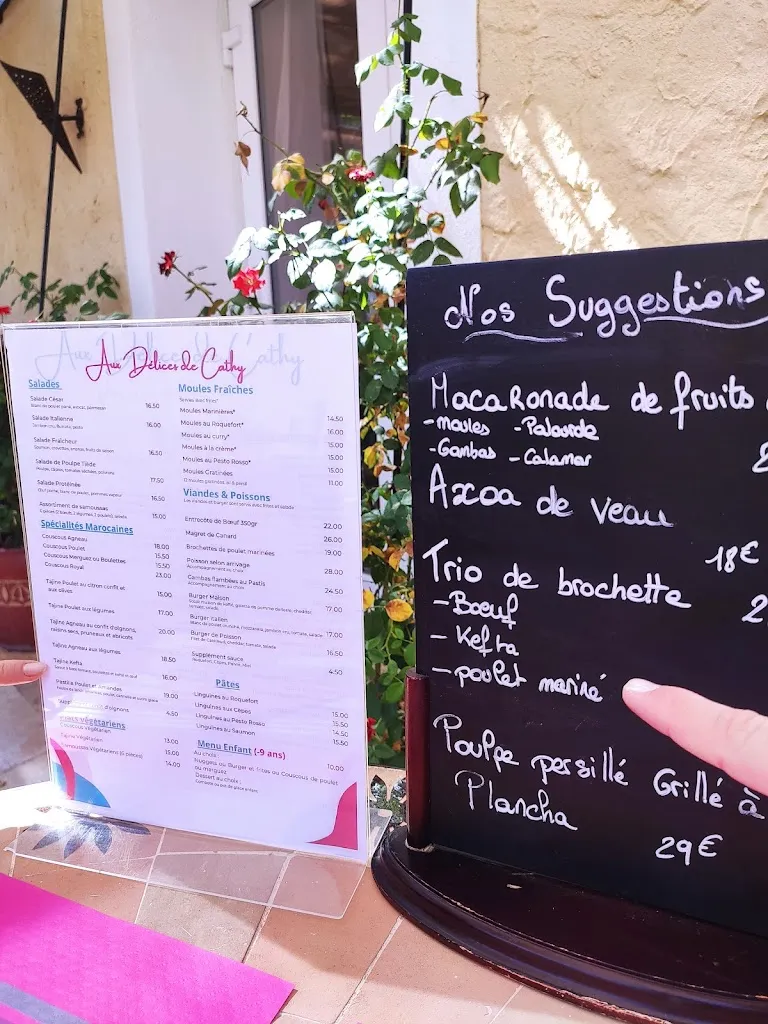 Aux Délices de Cathy
Salades
Salade César
16.50
Salade Italienne
16.00
Salade Fraîcheur
16.50
Salade de Poulpe Tiède
17.50
Salade Protéinée
16.50
Assortiment de samoussas
15.00
Spécialités Marocaines
Couscous Agneau 18.00
Couscous Poulet 15.50
Couscous Merguez ou Boulettes 15.50
Couscous Royal 23.00
Tajine Poulet au citron confit et
aux olives 15.00
Tajine Poulet aux légumes 17.00
Tajine Agneau au confit d'oignons,
raisins secs, pruneaux et abricots 20.00
Tajine Agneau aux légumes 18.50
Tajine Kefta 16.00
Pastilla Poulet et Amandes 19.00
confit d'oignons 4.50
Végétariens
Couscous Végétarien 13.00
Tajine Végétarien 15.00
Végétariens (6 pièces) 14.00
Moules Fraîches
Servies avec frites*
Moules Marinières* 14.50
Moules au Roquefort* 16.00
Moules au curry* 15.00
Moules à la crème* 15.00
Moules au Pesto Rosso* 15.00
Moules Gratinées 11.00
Viandes & Poissons
Entrecôte de Bœuf 350gr 22.00
Magret de Canard 26.00
Brochettes de poulet marinées 19.00
Poisson selon arrivage 28.00
Accompagnement au choix
Gambas flambées au Pastis 24.50
Accompagnement au choix
Burger Maison 17.00
Burger Italien 17.00
Burger de Poisson 16.50
Supplément sauce 4.50
Roquefort, Cèpes, Poivre, Miel
Pâtes
Linguines au Roquefort 15.00
Linguines aux Cèpes 15.50
Linguines au Pesto Rosso 14.50
Linguines au Saumon 15.50
Menu Enfant (-9 ans)
Au choix : 10.00
Nuggets ou Burger et frites ou Couscous de poulet
ou merguez
Dessert au choix :
Compote ou glace enfant
Nos Suggestions
Macaronade de fruits
- moules - Palourde
- Gambas - Calamar
Axoa de veau
18€
Trio de brochette
- Bœuf
- Kefta
- poulet mariné
Poulpe persillé Grillé à
Plancha
29€